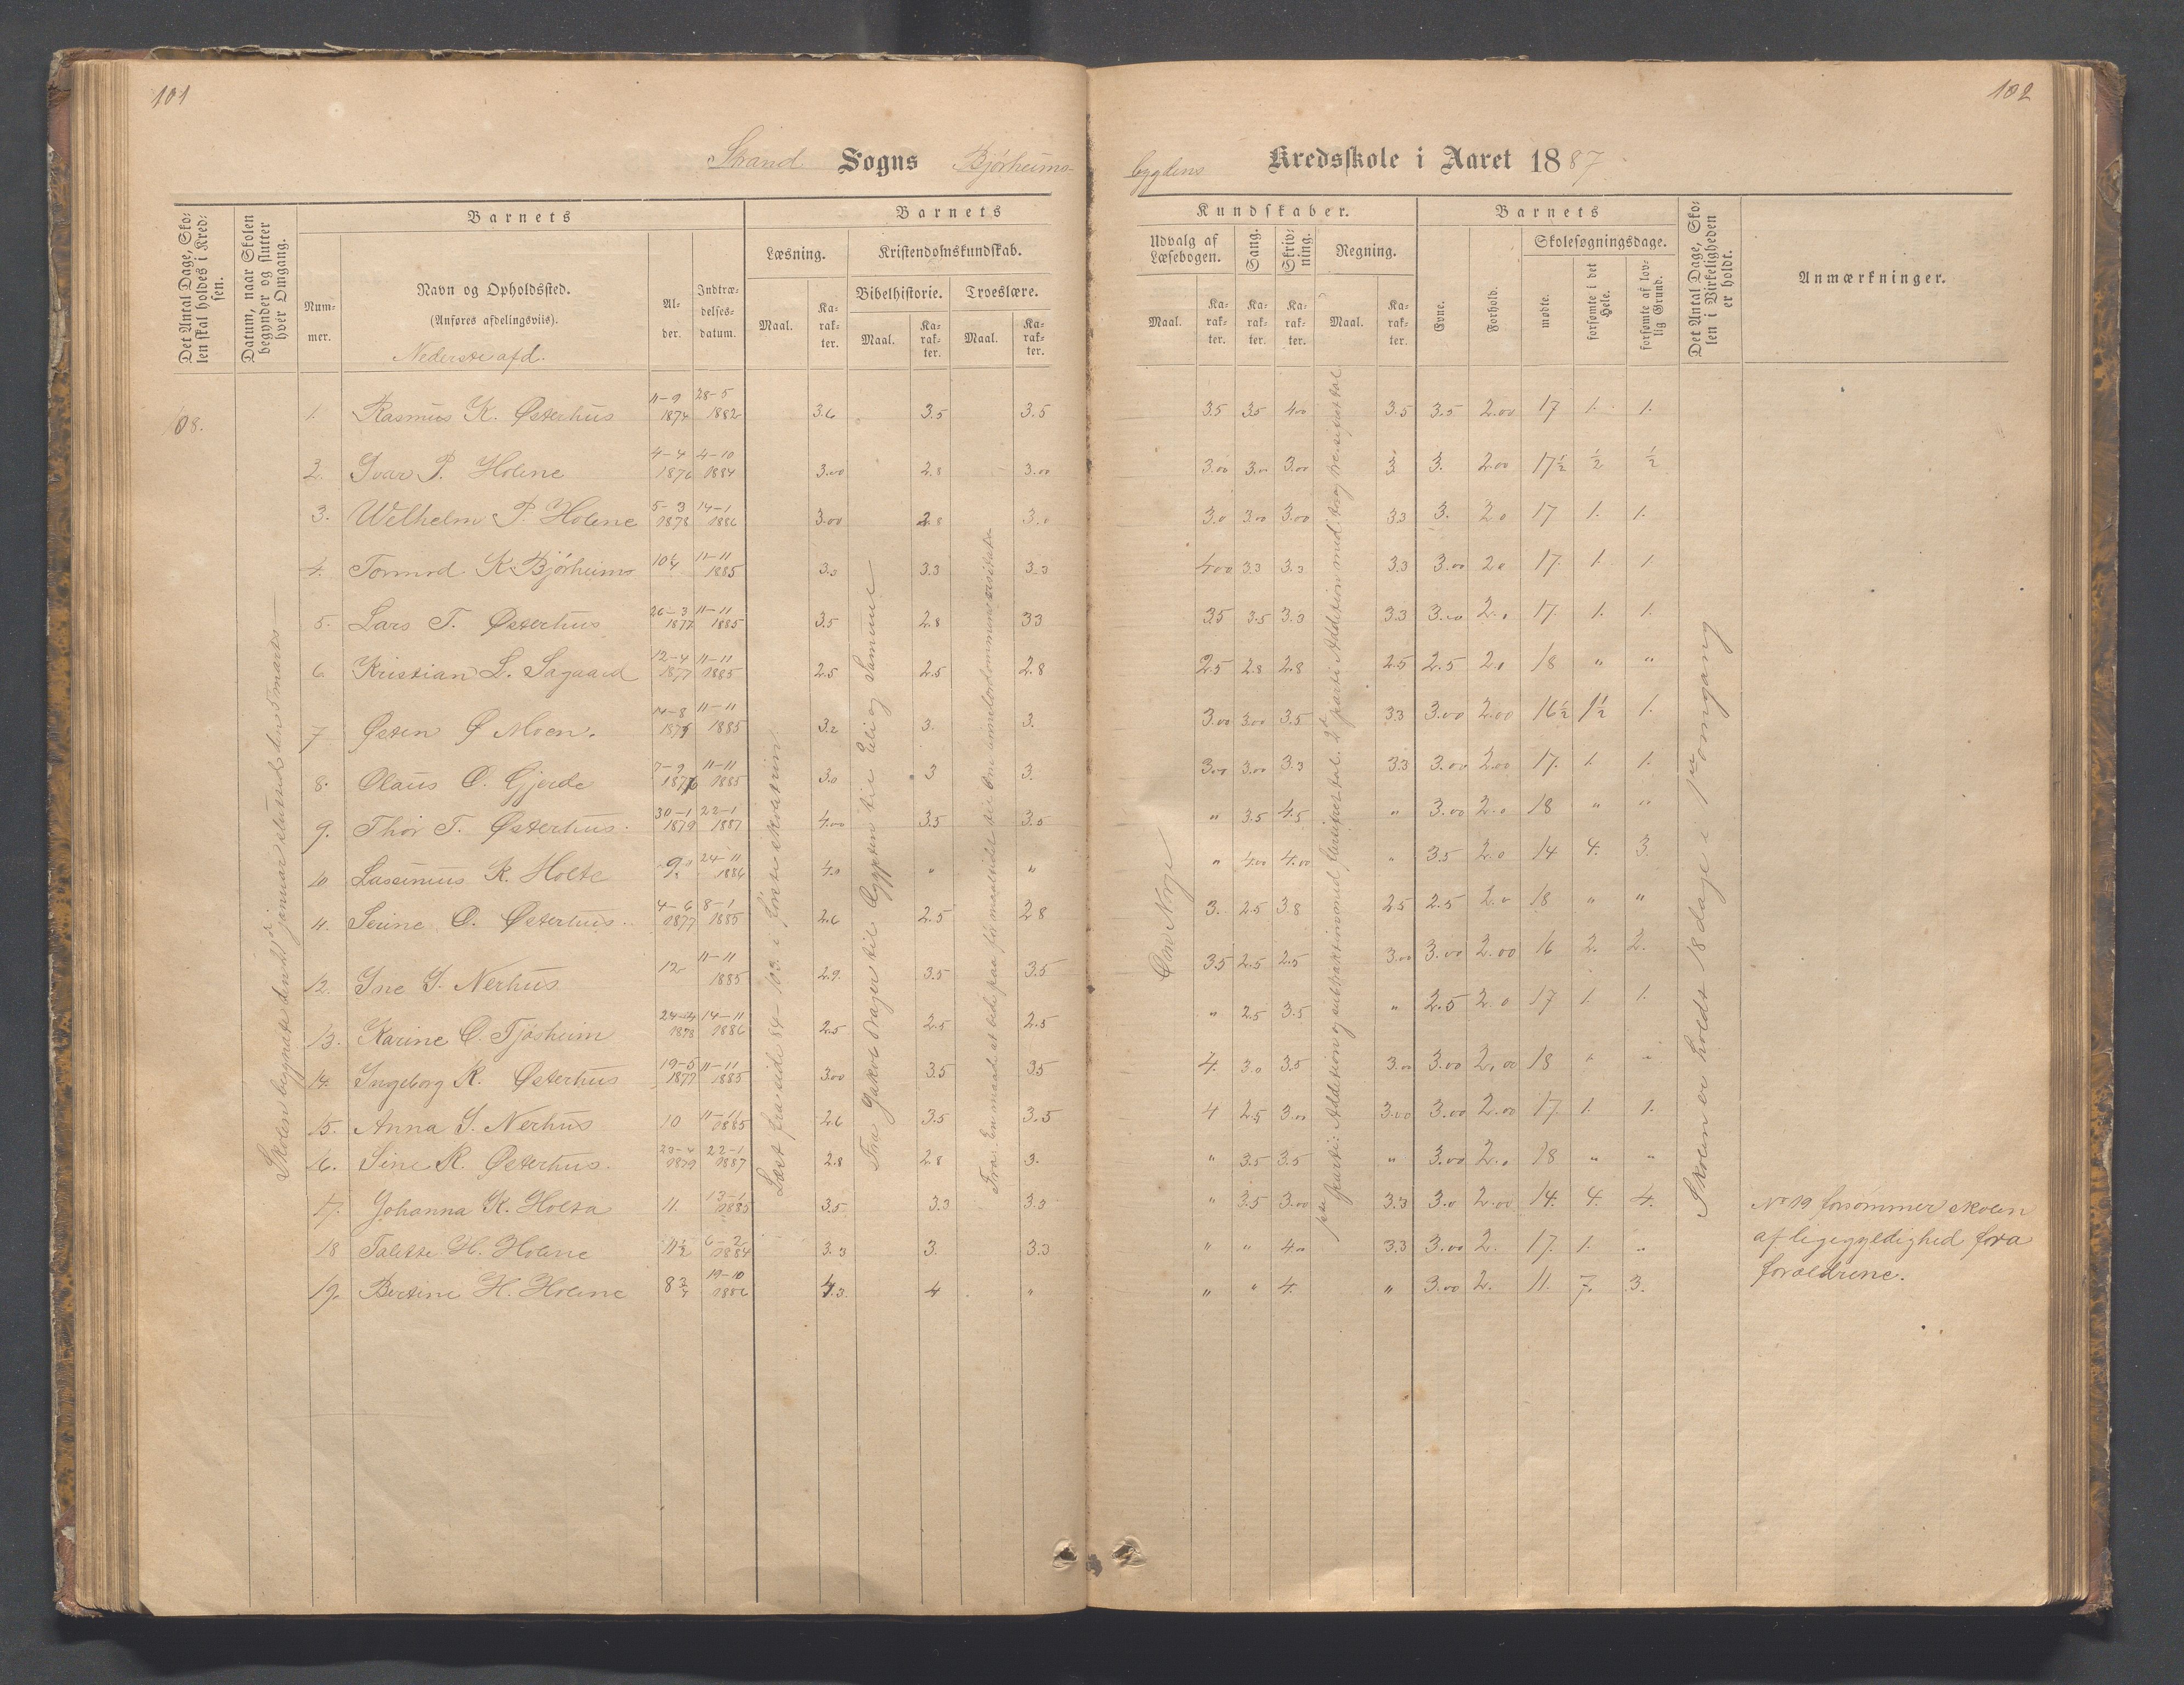 101
102
Strand Sogns Bjørheims-
bygdens Kredsskole i Aaret 1887.
Det Antal Dage, Sko-
len skal holdes i Kred-
sen.
Datum, naar Skolen
begynder og slutter
hver Omgang.
Barnets
Num-
mer.
Navn og Opholdssted.
(Anføres afdelingsviis).
Nederste afd.
Al-
der.
Indtræ-
delses-
datum.
Barnets
Læsning.
Maal.
Ka-
rak-
ter.
Kristendomskundskab.
Bibelhistorie.
Maal.
Ka-
rak-
ter.
Troeslære.
Maal.
Ka-
rak-
ter.
Kundskaber.
Udvalg af
Læsebogen.
Maal.
Ka-
rak-
ter.
Sang.
Ka-
rak-
ter.
Skriv-
ning.
Ka-
rak-
ter.
Regning.
Maal.
Ka-
rak-
ter.
Barnets
Evne.
Forhold.
Skolesøgningsdage.
mødte.
forsømte i det
Hele.
forsømte af lov-
lig Grund.
Det Antal Dage, Sko-
len i Virkeligheden
er holdt.
Anmærkninger.
108.
1. Rasmus K. Østerhus 11-9 1874 28-5 1882 3.6 3.5 3.5 3.5 3.5 4.00 3.5 3.5 2.00 17 1. 1.
2. Ivar P. Holene 4-4 1876 4-10 1884 3.00 2.8 3.00 3.00 3.00 3.00 3 3. 2.00 17½ ½ ½
3. Welhelm P. Holene 5-3 1878 14-1 1886 3.00 2.8 3.0 3.0 3.00 3.00 3.3 3. 2.0 17 1. 1.
4. Tormod K. Bjørheim 10¼ 11-11 1885 3.3 3.3 3.3 4.00 3.3 3.3 3.3 3.00 2.0 17. 1. 1.
5. Lars T. Østerhus 26-3 1877 11-11 1885 3.5 2.8 3.3 3.5 3.5 3.3 3.3 3.00 2.0 17. 1. 1.
6. Kristian L. Sagaard 12-4 1877 11-11 1885 2.5 2.5 2.8 2.5 2.8 2.8 2.5 2.5 2.0 18 " "
7 Østen Ø Moen. 14-8 1875 11-11 1885 3.2 3. 3. 3.00 3.00 3.5 3.3 3.00 2.00 16½ 1½ 1.
8. Olaus O. Gjerde 7-9 1876 11-11 1885 3.0 3 3. 3.00 3.00 3.3 3.3 3.00 2.00 17. 1. 1.
9. Thor T. Østerhus. 30-1 1879 22-1 1887 4.00 3.5 3.5 " 3.5 4.5 " 3.00 2.0 18 " "
10 K. Holte 9. 24-11 1886 4.0 " " " 4.00 4.00 " 3.5 2.0 14 4. 3.
11. O. Østerhus. 4-6 1877 8-1 1885 2.6 2.5 2.8 3. 2.5 3.8 2.5 2.5 2.0 18 " "
12. Ine I. Nerhus 12 11-11 1885 2.9. 3.5 3.5 3.5 2.5 2.5 3.00 3.00 2.00 16 2. 2.
13. Karine O. Tjøsheim 24-4 1878 14-11 1886 2.5 2.5 2.5 " 2.5 3.5 " 2.5 2.0 17 1. 1.
14. Ingeborg K. Østerhus 19-5 1877 11-11 1885 3.00 3.5 3.5 4. 3.0 3.5 3.00 3.00 2.00 18 " "
15. Anna I. Nerhus 10 11-11 1885 2.6 3.5 3.5 4 2.5 3.00 3.00 3.00 2.00 17. 1. 1.
16. Sine K. Østerhus. 1879 22-1 1887 2.8 2.8 3. " 3.5 3.5 " 3.00 2.0 18 " "
17. Johanna K. Holta 11. 13-1 1885 3.5 3.3 3.3 " 3.5 3.00 3.3 3.0 2.00 14. 4. 4.
18 Talette H. Holene 11½ 6-2 1884 3.3 3. 3.3 " " 4.00 3.3 3.00 2. 17. 1. "
19. Bertine H. Holene 8¾ 19-10 1886 4.3. 4 " " " 4. " 3.00 2. 11. 7. 3.
Skolen begynte den januar sluttede den 5 marts
Læst fra side 84-100 i første skoletrin
Fra Jakob drager til Egypten til Eli og Samuel
Fra: En maade at bede paa
Om Norge
1ste parti: Addition og subtraktion med flersifret tal. 2det parti: Addition med to og tresifret tal
Skolen er holdt 18 dage i 1ste omgang
No 19 forsømmer skolen
af ligegyldighed fora
forældrene.